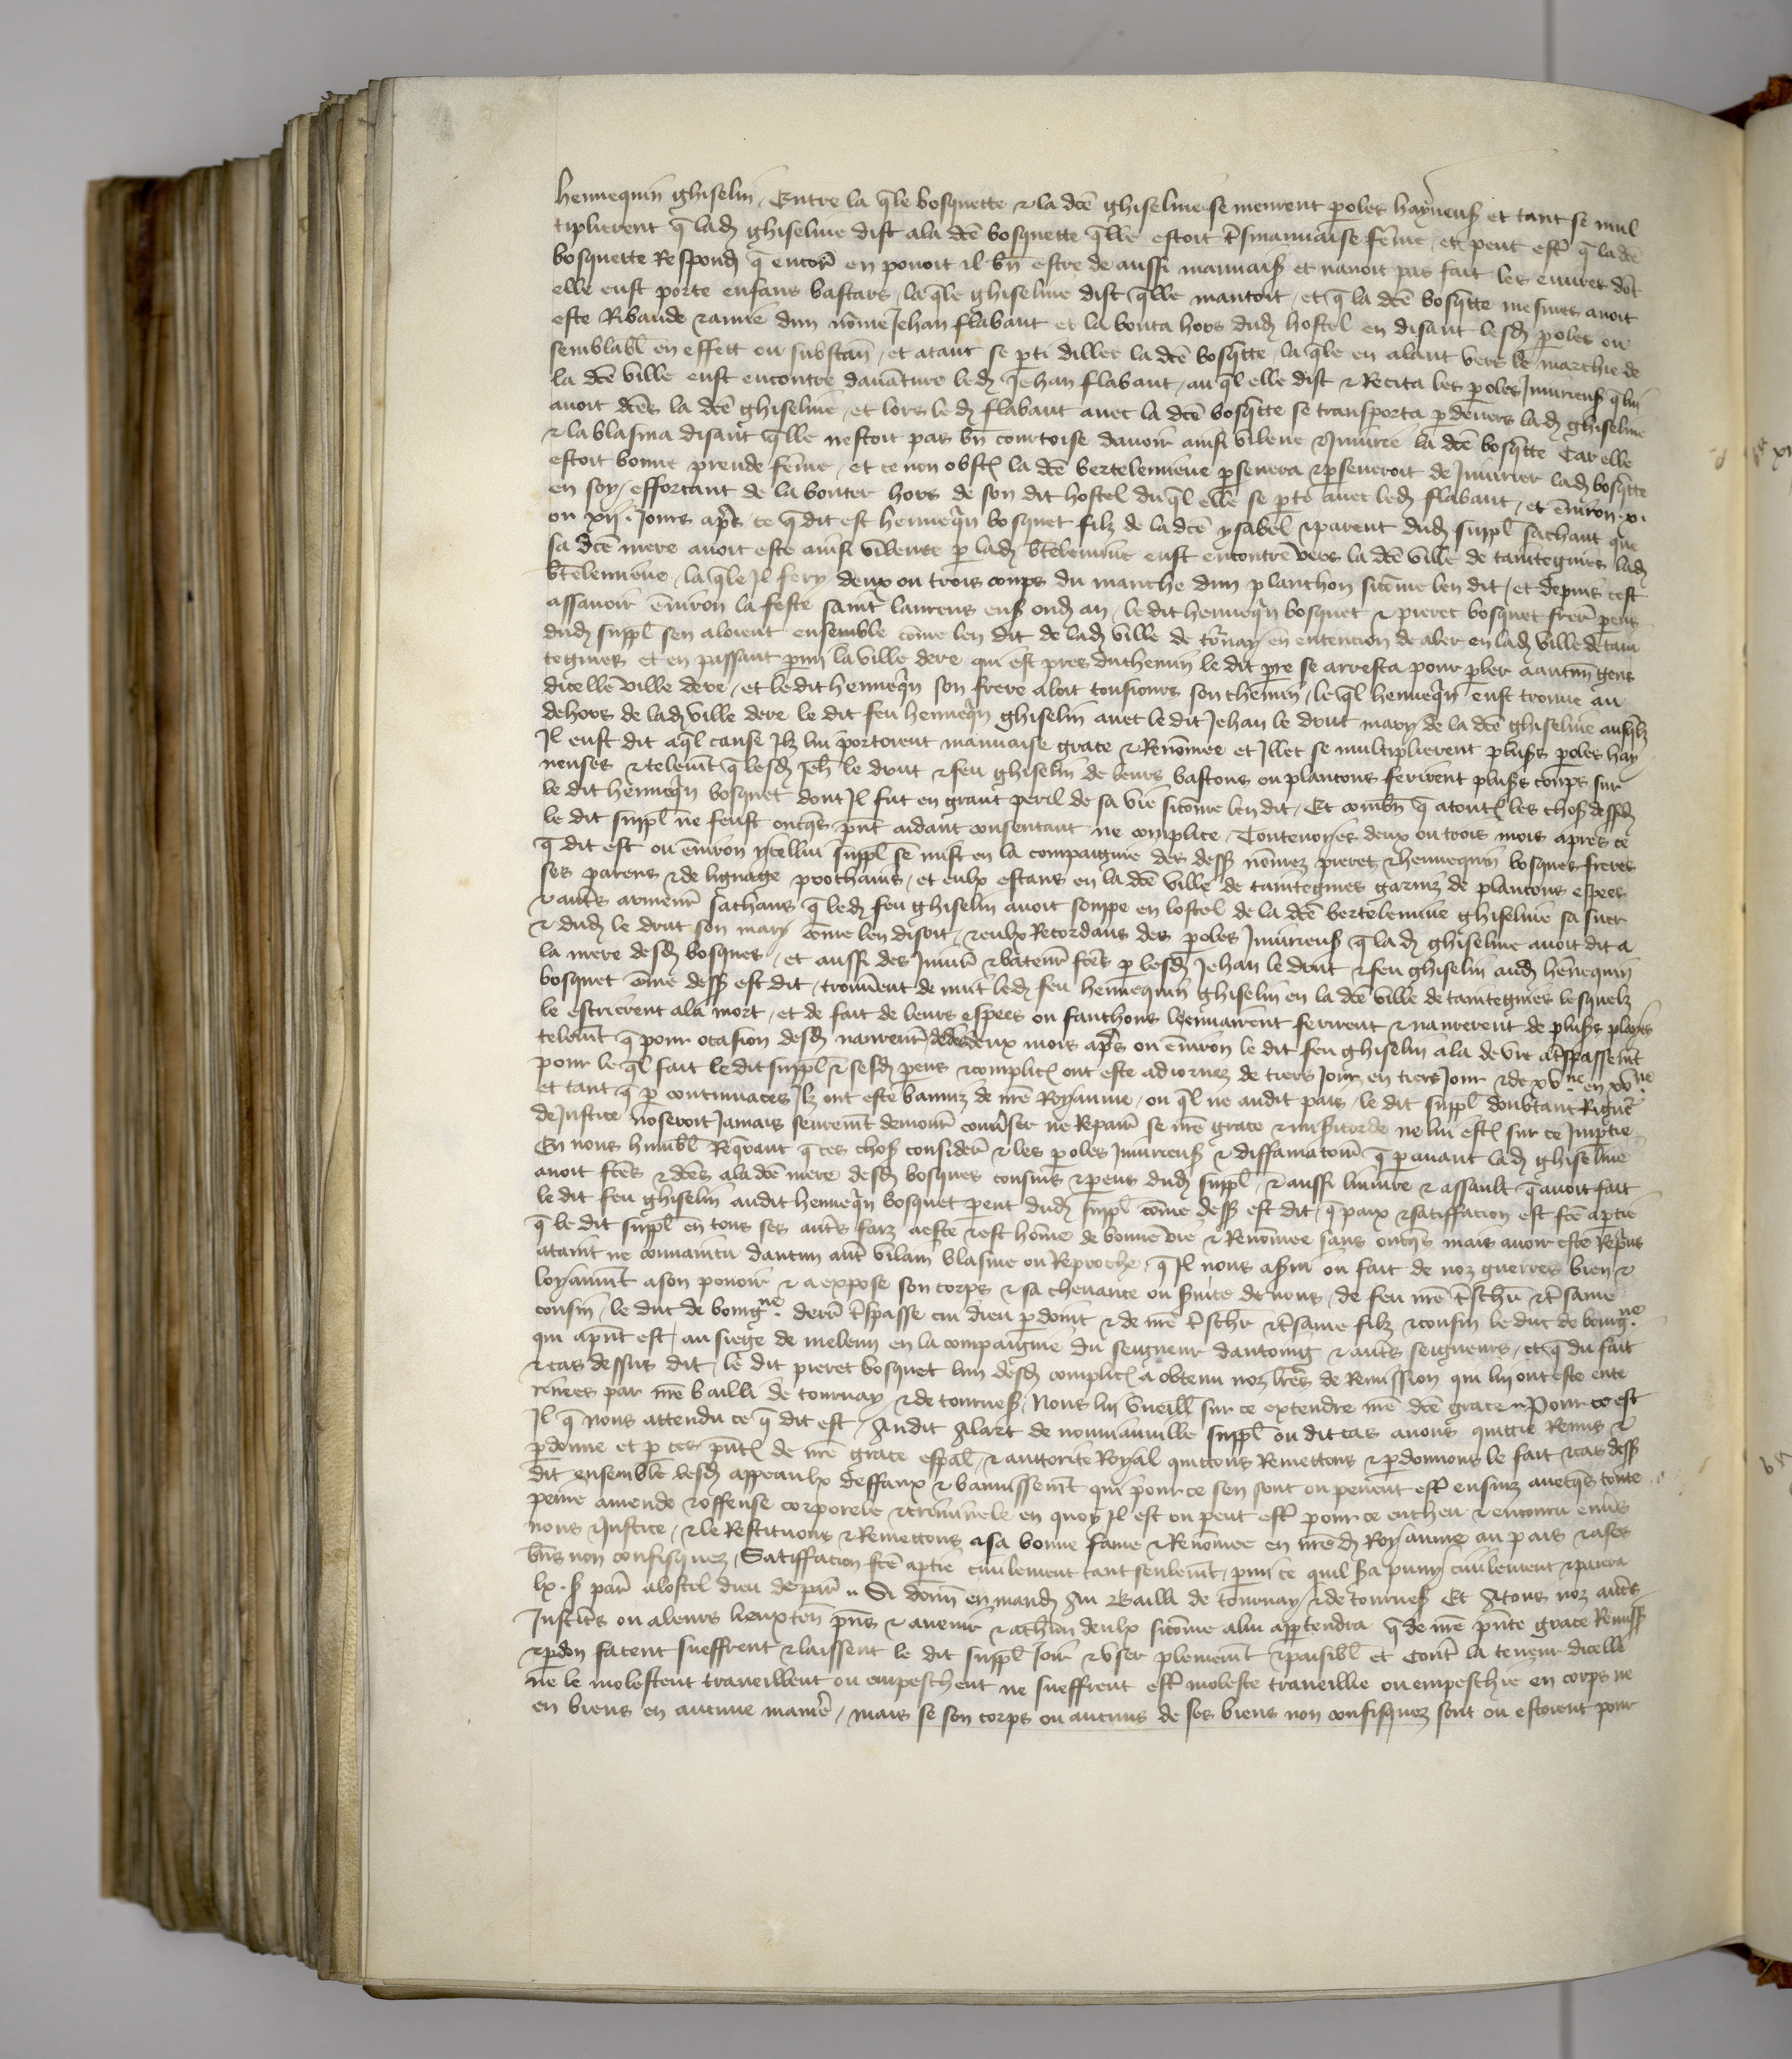 hennequin ghiselin. Entre la qle bosquette & la dce ghiseline se meurent poles hayneus et tant se mul
tiplierent q lad ghiseline dist a la dce bosquette qlle estoit tsmauuaise feme, et peut est q la dce
bosquette Respond q encor en pouoit il bn estre de aussi mauuais et nauoit pas fait les euures dot
elle eust porte enfans bastars, la qle ghiseline dist qlle mantoit, et q la dce bosqtte mesmes auoit
este Ribaude & amie dun nome Jehan flabaut et la bouta hors dud hostel en disant lesd poles ou
semblabl en effect ou substan, et atant se pti dillec la dce bosqtte, la qle en alant vers le marchie de
la dce ville eust encontre dauanture led Jehan flabaut, au ql elle dist & Recita les poles Iniurieus q lui
auoit dces la dce ghiseline, et lors led flabaut auec la dce bosqtte se transporta p deuers lad ghiseline
& la blasma disant qlle nestoit pas bn courtoise dauoir ainsi vilene & Iniurie la dce bosqtte Car elle
estoit bonne preude feme, et ce non obst la dce bertelemine pseuera & pseueroit de Iniurier lad bosqtte
en soy efforcant de la bouter hors de son dit hostel du ql elle se pti auec led flabaut, et enuiron xi
ou xij. Jours aps ce q dit est hennequin bosquet filz de la dce ysabel & parent dud suppl sachant que
sa dce mere auoit este ainsi vilenee p lad btelemine eust encontre vers la dce ville de taintegnies lad
btelemine, la qle Il fery deux ou trois coups du manche dun planchon sicome len dit, et depuis cest
assauoir enuiron la feste saint laurens ens oud an, le dit hennequin bosquet & pieret bosquet frer pens
dud suppl sen aloient ensemble come len dit de lad ville de tornay en entencion de aler en lad ville de tain
tegnies et en passant pmi la ville dere qui est pres du chemin le dit pre se arresta pour pler a aucun gens
dicelle ville dere, et le dit hennequin son frere aloit tousiours son chemin, le ql hennequin eust trouue au
dehors de lad ville dere le dit feu hennequin ghiselin auec le dit Jehan le dout mary de la dce ghiseline ausqlz
Il eust dit a ql cause Ilz lui portoient mauuaise grace & Renomee et Illec se multiplierent pluss poles hay
neuses & telemt q lesd Jeh le dout & feu ghiselin de leurs bastons ou plancons ferirent pluss coups sur
le dit hennequin bosquet dont Il fut en grant peril de sa vie sicome len dit, Et combn q a tout les chos dessd
le dit suppl ne feust oncqs pnt aidant consentant ne complice, Toutesuoyes deux ou trois mois apres ce
q dit est ou enuiron ycellui suppl se mist en la compaignie des dess nomez pieret & hennequin bosques freres
ses parens & de lignage prochains, et eulx estans en la dce ville de taintegnies garniz de plancons espees
& auts armeur sachans q led feu ghiselin auoit souppe en lostel de la dce bertelemine ghiseline sa suer
& dud le dout son mary come len disoit, & eulx Recordans des poles Iniurieus q lad ghiseline auoit dit a
la mere desd bosques, et aussi des Iniur & bateur fces p lesd Jehan le dout & feu ghiselin aud hennequin
bosquet come dess est dit, trouuerent de nuit led feu hennequin ghiselin en la dce ville de taintegnies lesquelz
le escrierent a la mort, et de fait de leurs espees ou fauchons lenuairent ferirent & naurerent de pluss playes
telemt q pour ocasion desd naureur dedes deux mois aps ou enuiron le dit feu ghiselin ala de vie a tspassemt
pour le ql fait le dit suppl & sesd pens & complic ont este adiornez de tiers Jour en tiers Jour & de xvne en xvne
et tant q p contumaces Ilz ont este banniz de nre Royaume, ou ql ne audit pais, le dit suppl doubtant Rigueur
de Justice noseroit Jamais seuremt demour conuser ne Repair se nre grace & misicorde ne lui est sur ce Imptie
En nous humbl Requrant q ces chos consider & les poles Iniurieus & diffamatoir q parauant lad ghiseline
auoit fces & dces a la dce mere desd bosques cousins & pens dud suppl, & aussi liniure & assault q auoit fait
le dit feu ghiselin audit hennequin bosquet pent dud suppl come dess est dit, q paix & satiffacion est fce a ptie
q le dit suppl en tous ses auts faiz a este & est home de bonne vie & Renomee sans oncqs mais auoir este Repris
ataint ne conuaincu daucun aut vilain blasme ou Reproche, q Il nous a sui ou fait de noz guerres bien &
loyaumt a son pouoir & a expose son corps & sa cheuance ou suice de nous, de feu nre tschr & tsame
cousin le duc de bourgne. derr tspasse cui dieu pdoint & de nre tschr & tsame filz & cousin le duc de bourgne
qui apnt est, au siege de meleun en la compaignie du seigneur dantoing & auts seigneurs, et q du fait
& cas dessus dit, le dit pieret bosquet lun desd complic a obtenu noz lres de Remission qui lui ont este ente
rinees par nre bailli de tournay & de tournes, Nous lui vueill sur ce extendre nre dce grace. Pour ce est
Il q nous attendu ce q dit est, Audit Alart de suppl ou dit cas auons quictie Remis &
pdonne et p ces pnt de nre grace espal & auctorite Royal quictons Remettons & pdonnons le fait & cas dess
dit ensemble lesd appeaulx deffaux & bannissemt qui pour ce sen sont ou peuent est ensuiz auecqs toute
peine amende & offense corporele & criminele en quoy Il est ou peut est pour ce encheu & encouru enus
nous & Justice, & le Restituons & Remettons a sa bonne fame & Renomee en nred Royaume au pais & a ses
bns non confisquez, Satiffacion fce a ptie ciuilement tant seulemt, pmi ce quil sa puny ciuilement & paiera
lx. s par a lostel dieu de par. Si donn en mand Au Bailli de tournay & de tournes Et A tous noz auts
Justics ou a leurs lieuxten pns & auenir & a chun deulx sicome a lui appartendra q de nre pnte grace Remiss
& pdon facent sueffrent & laissent le dit suppl Joir & vser plenemt & paisibl et Cont la teneur dicelle
ne le molestent traueillent ou empeschent ne sueffrent est moleste traueillie ou empeschie en corps ne
en biens en aucune manie, mais se son corps ou aucuns de ses biens non confisquez sont ou estoient pour